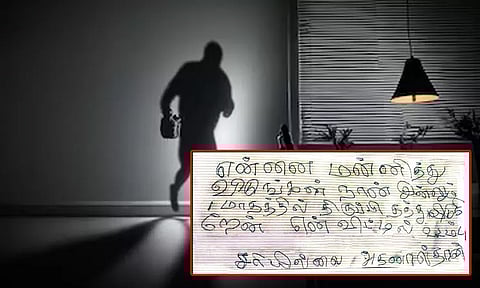 என்னை மன்னித்து
விடுங்கள் நான் இன்னும்
1 மாதத்தில் திருப்பி தந்துவிடு
றேன் என் வீட்டில் உடம்பு
சரியில்லை அதனால்தான்